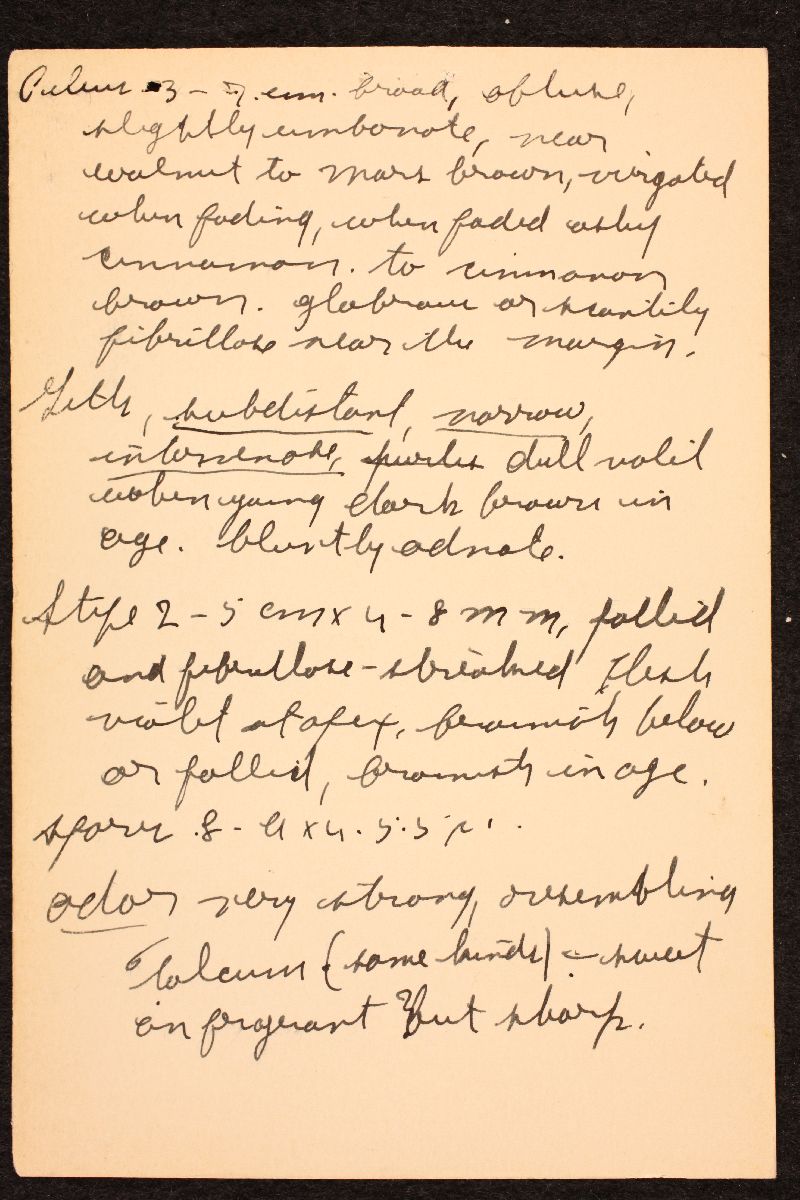 Pileus 3 - 7 cm. broad, obtuse,
slightly umbonate, near
walnut to mars brown, virgated
when fading, when faded ashy
cinnamon. to cinnamon
brown. glabrous or scantily
fibrillose near the margin.
Gills, subdistant, narrow,
intervenose, dull violet
when young dark brown in
age. bluntly adnate.
Stipe 2 - 5 cm x 4 - 8 mm, pallid
and fibrillose - streaked Flesh
violet at apex, brownish below
or pallid, brownish in age.
spores 8 - 9 x 4 - 5.5 µ.
odor very strong, resembling
Talcum (some kinds) - sweet
or fragrant but sharp.